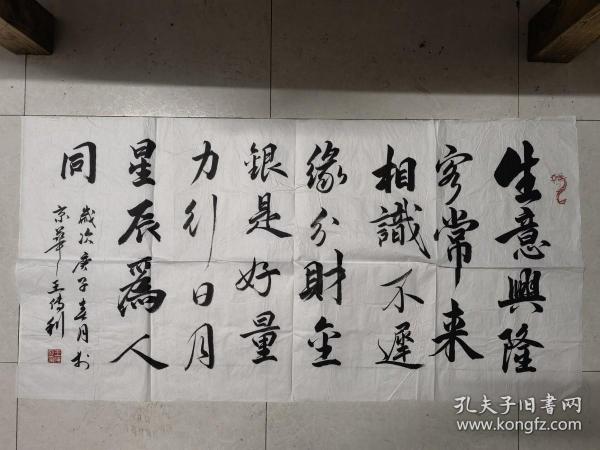 生意興隆
客常来
相識不遲
緣分財金
銀是好量
力行日月
星辰為人
同
歲次庚子春月於
京華王傳利
孔夫子旧书网
www.kongfz.com